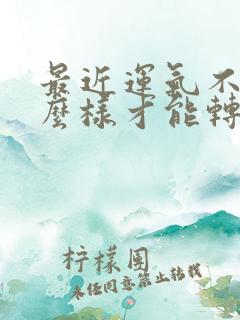 最近運氣不
麼樣才能轉
柠檬围
未经同意禁止转载